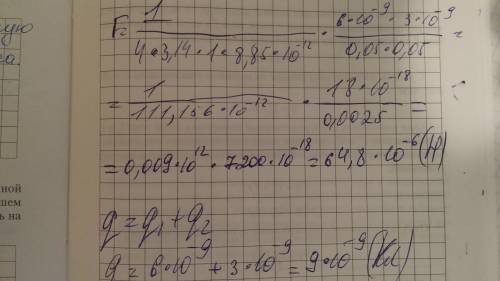 F = 1 / (4*3,14*1*8,85*10⁻¹²) · (6*10⁻⁹ · 3*10⁻⁹) / (0,05*0,05) =
= 1 / (111,156*10⁻¹²) · (18*10⁻¹⁸) / 0,0025 =
= 0,009*10¹² · 7200*10⁻¹⁸ = 64,8*10⁻⁶ (Н)
q = q₁ + q₂
q = 6*10⁻⁹ + 3*10⁻⁹ = 9*10⁻⁹ (Кл)
ной
шем
ь на